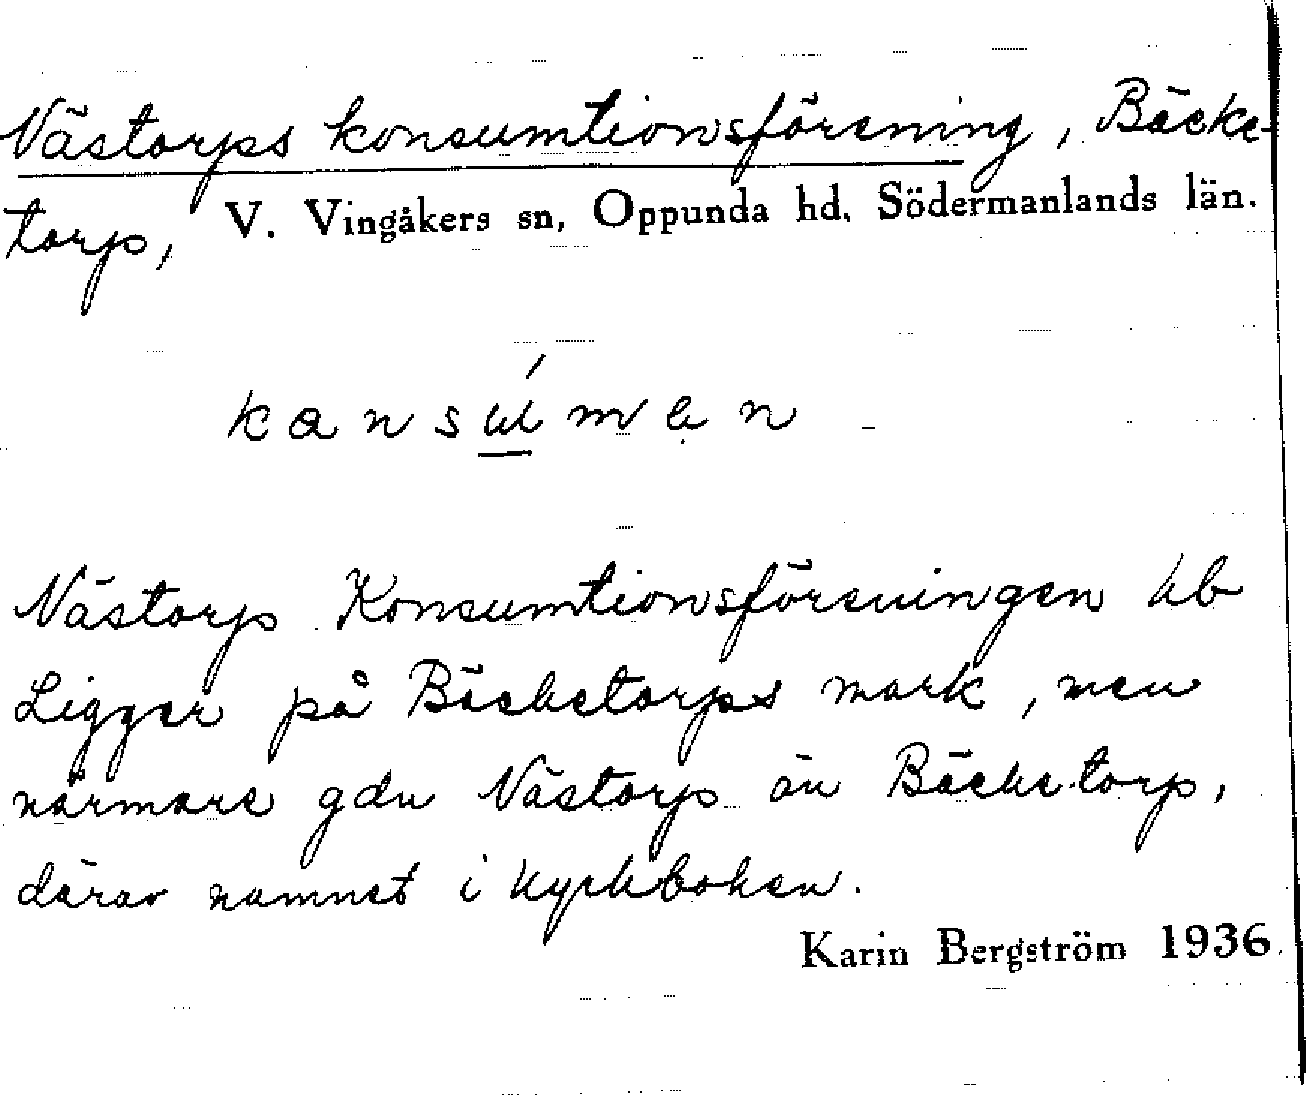 Nästorps konsumtionsförening, Bäcke-
torp, V. Vingåkers sn, Oppunda hd, Södermanlands län.
kansúmen
Nästorp Konsumtionsföreningen kb
Ligger på Bäcketorps mark, men
närmare gdn Nästorp än Bäcketorp,
därav namnet i kyrkboken.
Karin Bergström 1936.